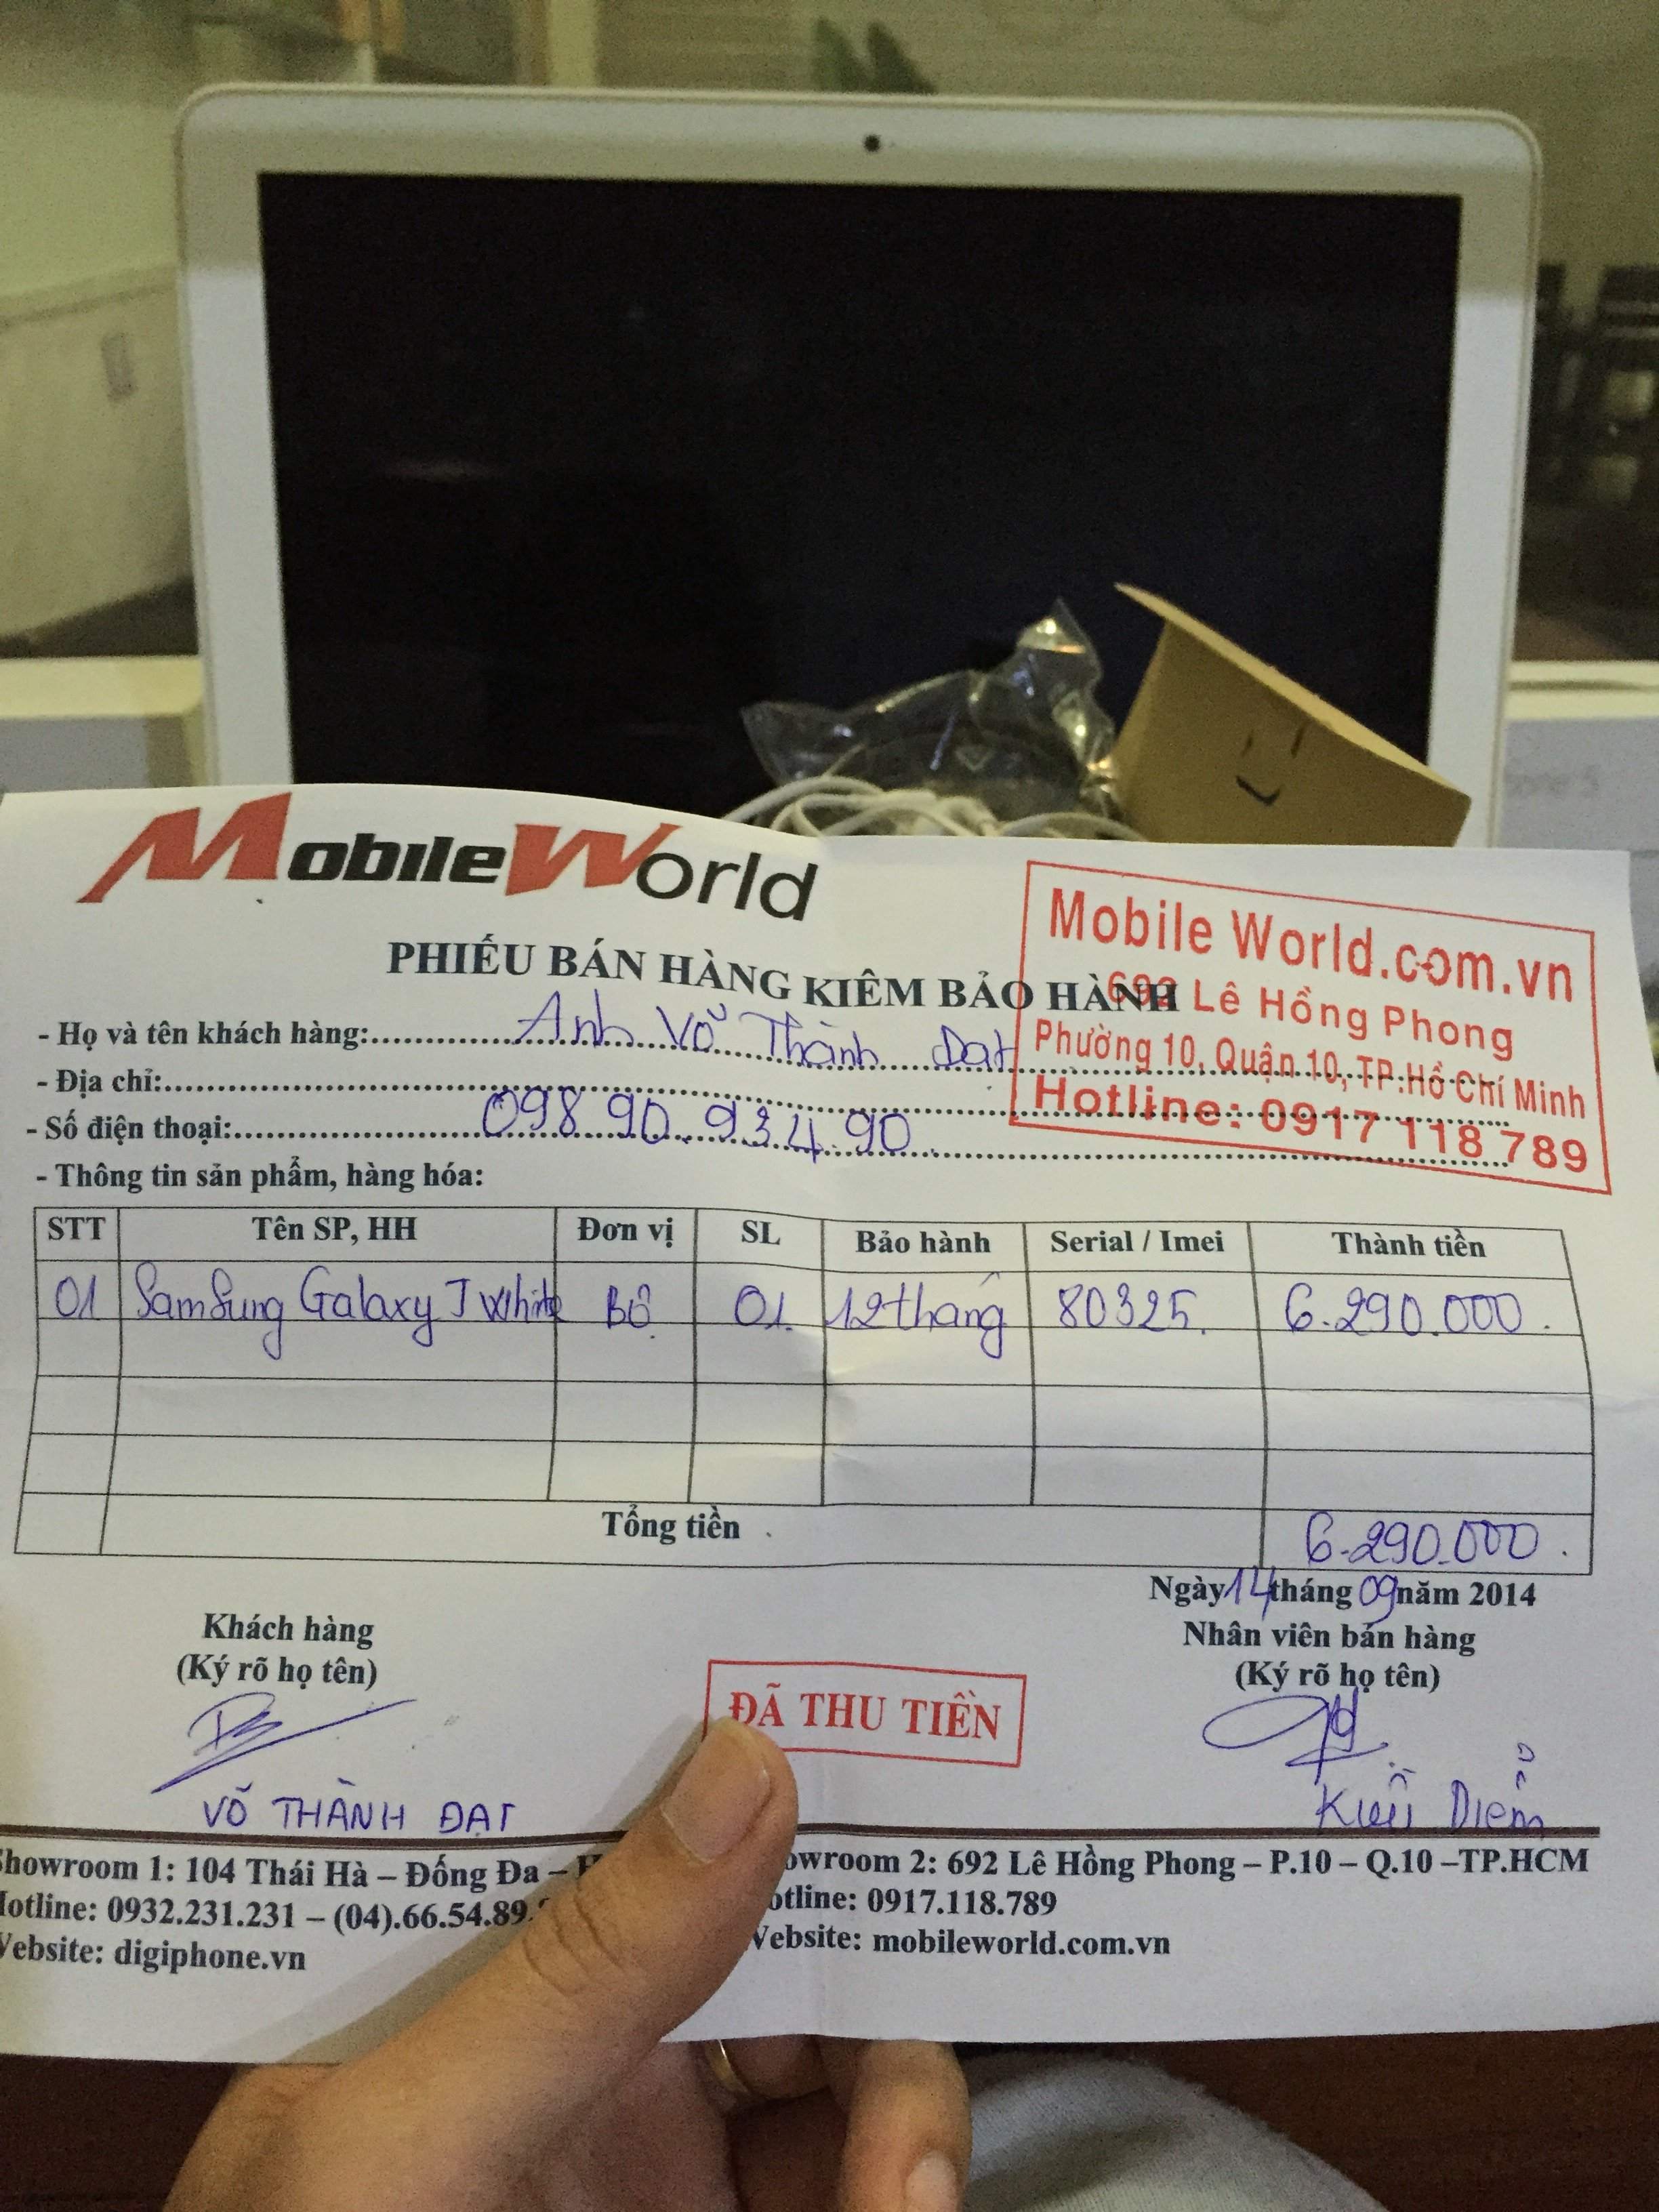 MobileWorld
Mobile World.com.vn
692 Lê Hồng Phong
Phường 10, Quận 10, TP.Hồ Chí Minh
Hotline: 0917 118 789
PHIẾU BÁN HÀNG KIÊM BẢO HÀNH
- Họ và tên khách hàng: Anh Võ Thành Đạt
- Địa chỉ:
- Số điện thoại: 098 90. 934 90
- Thông tin sản phẩm, hàng hóa:
STT Tên SP, HH Đơn vị SL Bảo hành Serial / Imei Thành tiền
01 SamSung Galaxy J White Bộ 01 12 tháng 80325. 6.290.000.
Tổng tiền 6.290.000.
Ngày 14 tháng 09 năm 2014
Khách hàng Nhân viên bán hàng
(Ký rõ họ tên) (Ký rõ họ tên)
ĐÃ THU TIỀN
VÕ THÀNH ĐẠT Diễm
Showroom 1: 104 Thái Hà – Đống Đa –
Hotline: 0932.231.231 – (04).66.54.89.
Website: digiphone.vn
Showroom 2: 692 Lê Hồng Phong – P.10 – Q.10 –TP.HCM
Hotline: 0917.118.789
Website: mobileworld.com.vn